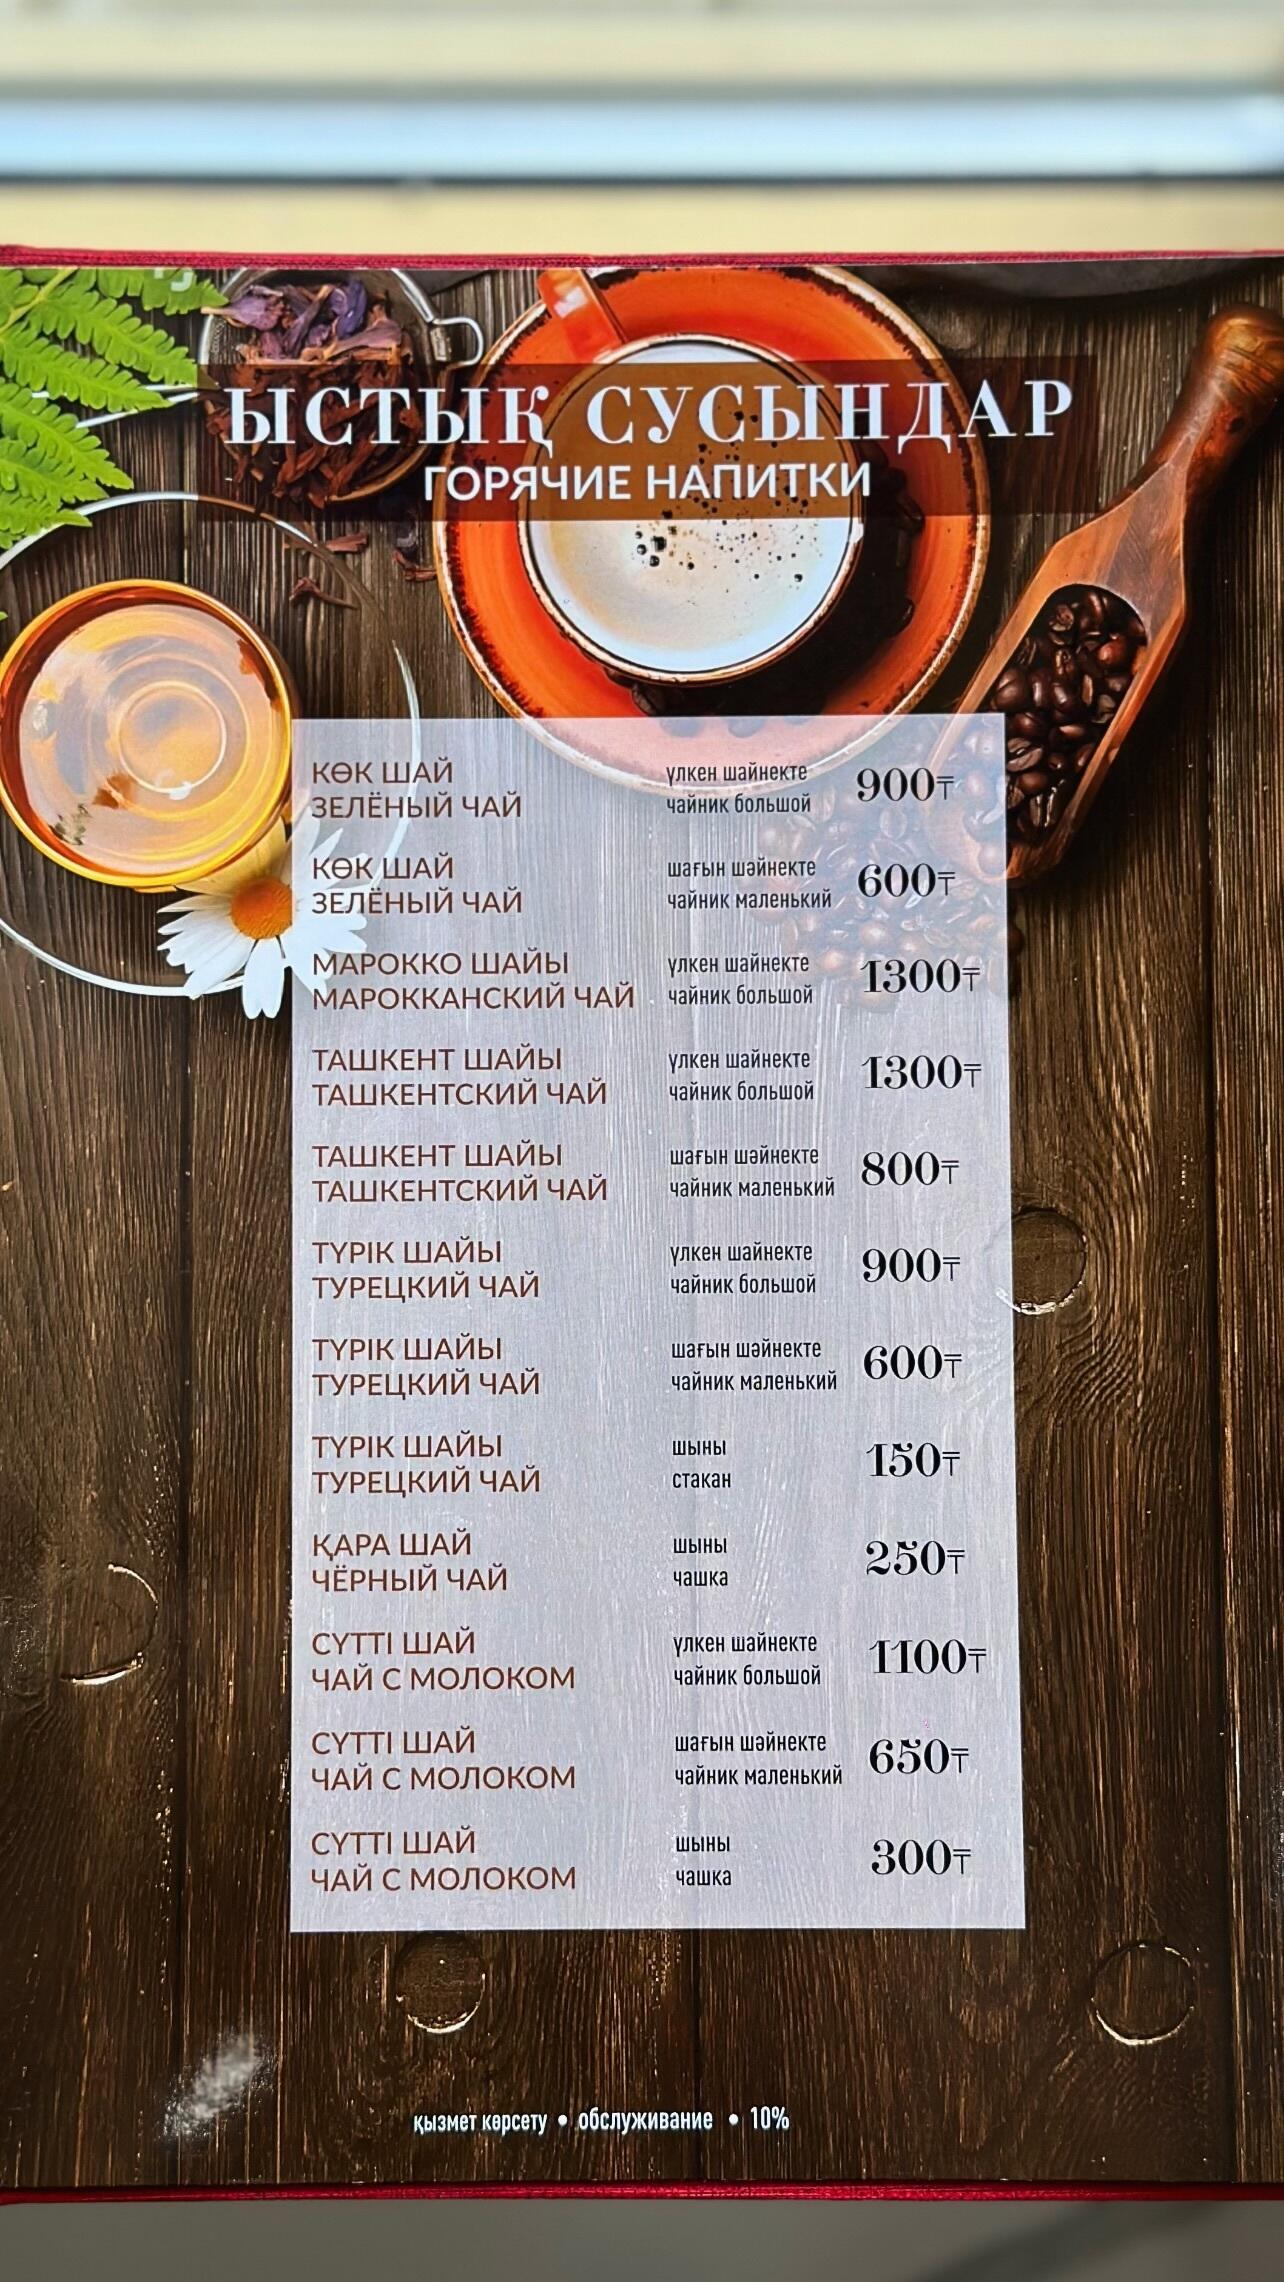 ЫСТЫҚ СУСЫНДАР
ГОРЯЧИЕ НАПИТКИ
КӨК ШАЙ
ЗЕЛЁНЫЙ ЧАЙ
үлкен шайнекте
чайник большой
900₸
КӨК ШАЙ
ЗЕЛЁНЫЙ ЧАЙ
шағын шәйнекте
чайник маленький
600₸
МАРОККО ШАЙЫ
МАРОККАНСКИЙ ЧАЙ
үлкен шайнекте
чайник большой
1300₸
ТАШКЕНТ ШАЙЫ
ТАШКЕНТСКИЙ ЧАЙ
үлкен шайнекте
чайник большой
1300₸
ТАШКЕНТ ШАЙЫ
ТАШКЕНТСКИЙ ЧАЙ
шағын шәйнекте
чайник маленький
800₸
ТҮРІК ШАЙЫ
ТУРЕЦКИЙ ЧАЙ
үлкен шайнекте
чайник большой
900₸
ТҮРІК ШАЙЫ
ТУРЕЦКИЙ ЧАЙ
шағын шәйнекте
чайник маленький
600₸
ТҮРІК ШАЙЫ
ТУРЕЦКИЙ ЧАЙ
шыны
стакан
150₸
ҚАРА ШАЙ
ЧЁРНЫЙ ЧАЙ
шыны
чашка
250₸
СҮТТІ ШАЙ
ЧАЙ С МОЛОКОМ
үлкен шайнекте
чайник большой
1100₸
СҮТТІ ШАЙ
ЧАЙ С МОЛОКОМ
шағын шәйнекте
чайник маленький
650₸
СҮТТІ ШАЙ
ЧАЙ С МОЛОКОМ
шыны
чашка
300₸
қызмет көрсету • обслуживание • 10%